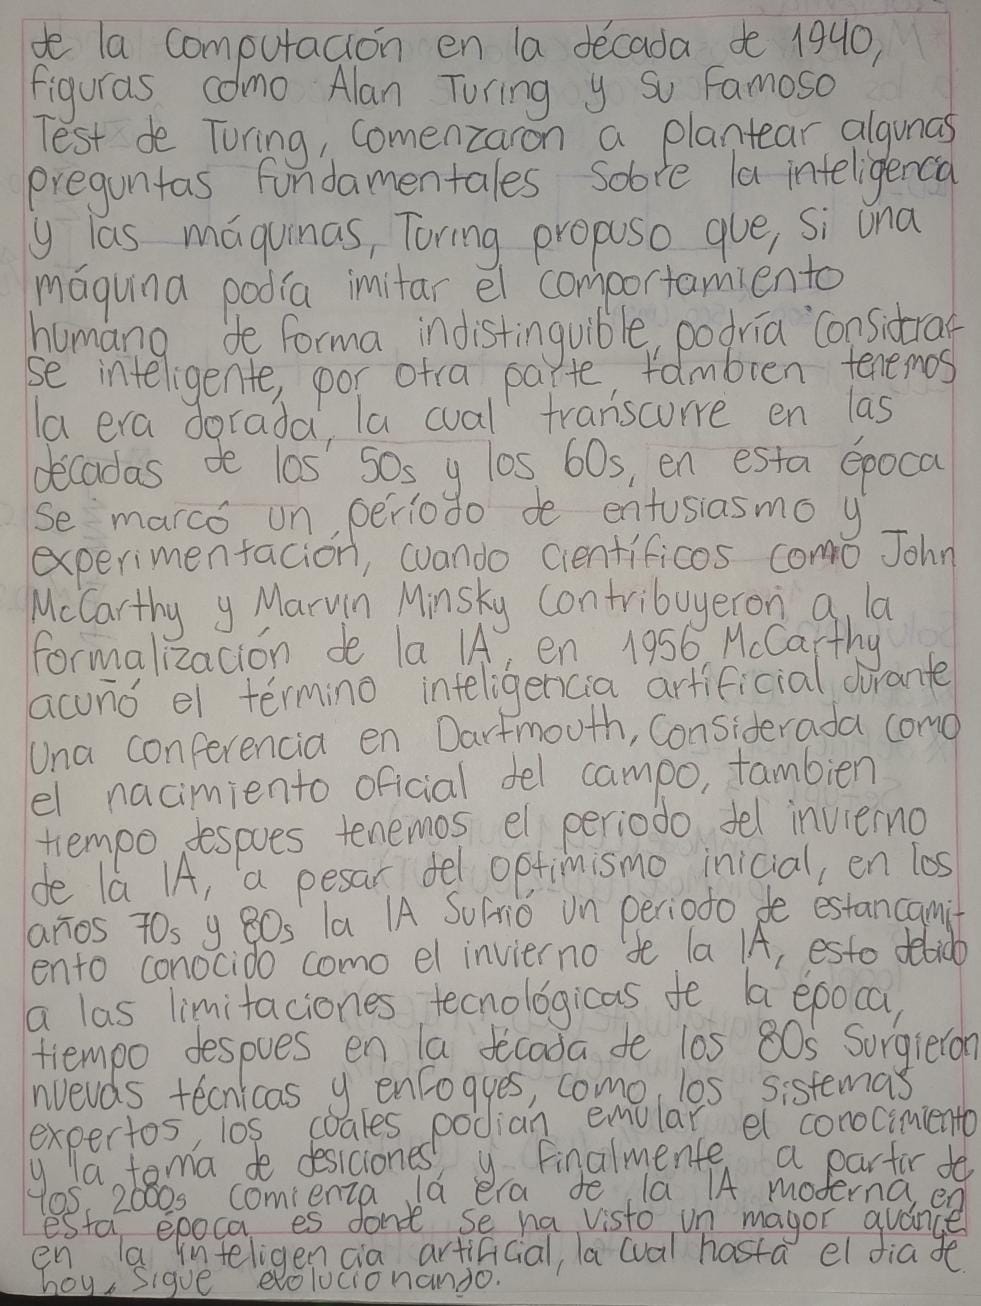 de la computación en la década de 1940,
figuras como Alan Turing y su famoso
Test de Turing, comenzaron a plantear algunas
preguntas fundamentales sobre la inteligencia
y las máquinas, Turing propuso que, si una
máquina podía imitar el comportamiento
humano de forma indistinguible, podría considerar
se inteligente, por otra parte, tambien tenemos
la era dorada, la cual transcurre en las
décadas de los 50s y los 60s, en esta época
se marcó un período de entusiasmo y
experimentación, cuando científicos como John
McCarthy y Marvin Minsky contribuyeron a la
formalización de la IA, en 1956 McCarthy
acuñó el término inteligencia artificial durante
una conferencia en Dartmouth, considerada como
el nacimiento oficial del campo, tambien
tiempo despues tenemos el periodo del invierno
de la IA, a pesar del optimismo inicial, en los
años 70s y 80s la IA sufrió un periodo de estancami-
ento conocido como el invierno de la IA, esto debido
a las limitaciones tecnológicas de la época,
tiempo despues en la década de los 80s surgieron
nuevas técnicas y enfoques, como los sistemas
expertos, los cuales podian emular el conocimiento
y la toma de desiciones y finalmente a partir de
los 2000s comienza la era de la IA moderna, en
esta época es donde se ha visto un mayor avance
en la inteligencia artificial, la cual hasta el dia de
hoy, sigue evolucionando.